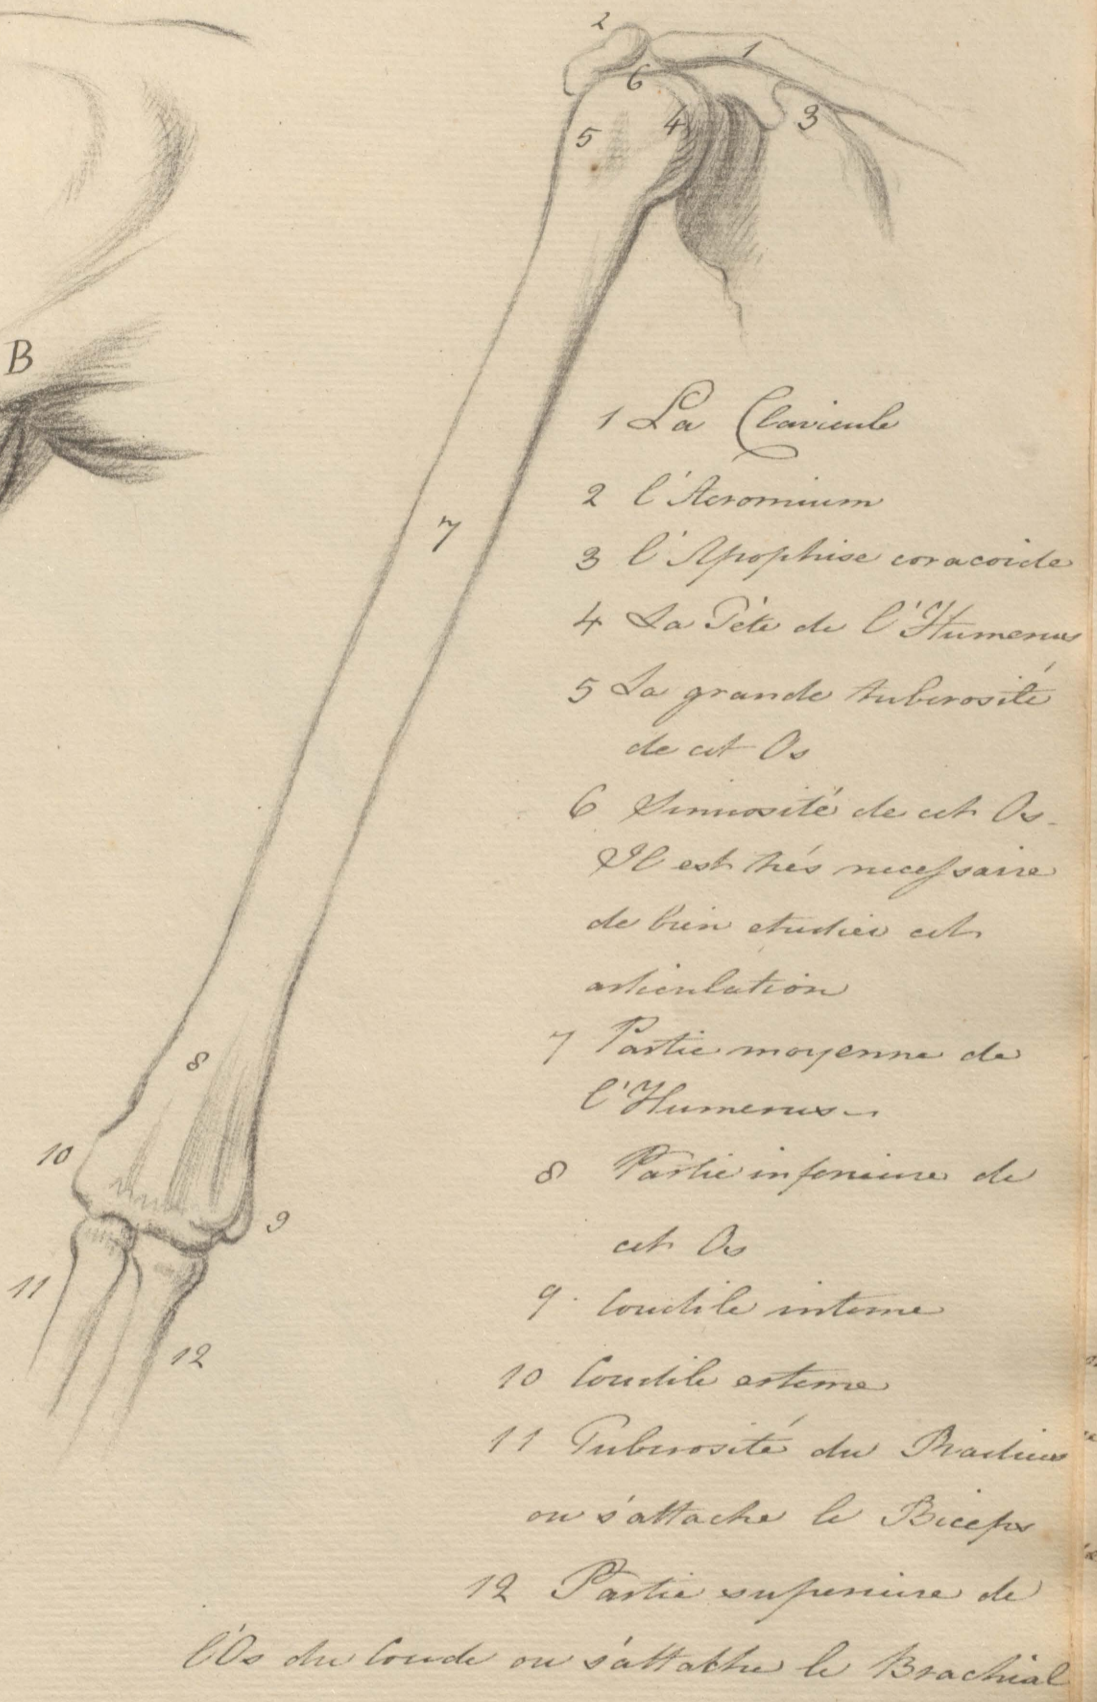 2
1
6
3
4
5
B
7
8
10
9
11
12
1 La Clavicule
2 l'Acromium
3 l'Apophise coracoide
4 La Tête de l'Humerus
5 La grande tuberosité
de cet Os
6 Sinuosité de cet Os.
Il est trés necessaire
de bien etudier cet
articulation
7 Partie moyenne de
l'Humerus
8 Partie inferieure de
cet Os
9 Condile interne
10 Condile externe
11 Tuberosité du Radius
ou s'attache le Biceps
12 Partie superieure de
l'Os du Coude ou s'attache le Brachial